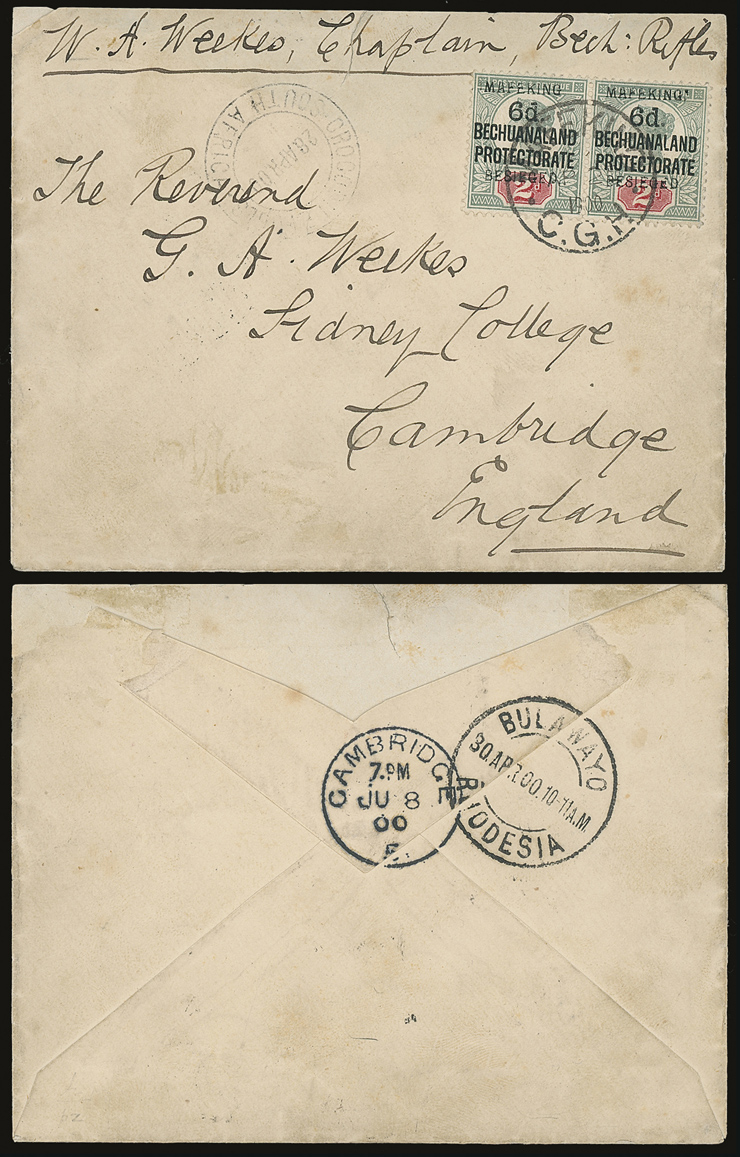 W. A. Weekes, Chaplain, Bech: Rifles
MAFEKING
6d.
BECHUANALAND
PROTECTORATE
BESIEGED.
2d
MAFEKING,
6d.
BECHUANALAND
PROTECTORATE
BESIEGED
2d
1900
C.G.H.
SOUTH AFRICA
28 APR
The Reverend
G. A. Weekes
Sidney College
Cambridge
England
CAMBRIDGE
7.PM
JU 8
00
BULAWAYO
30.APR.00.10-11A.M.
RHODESIA